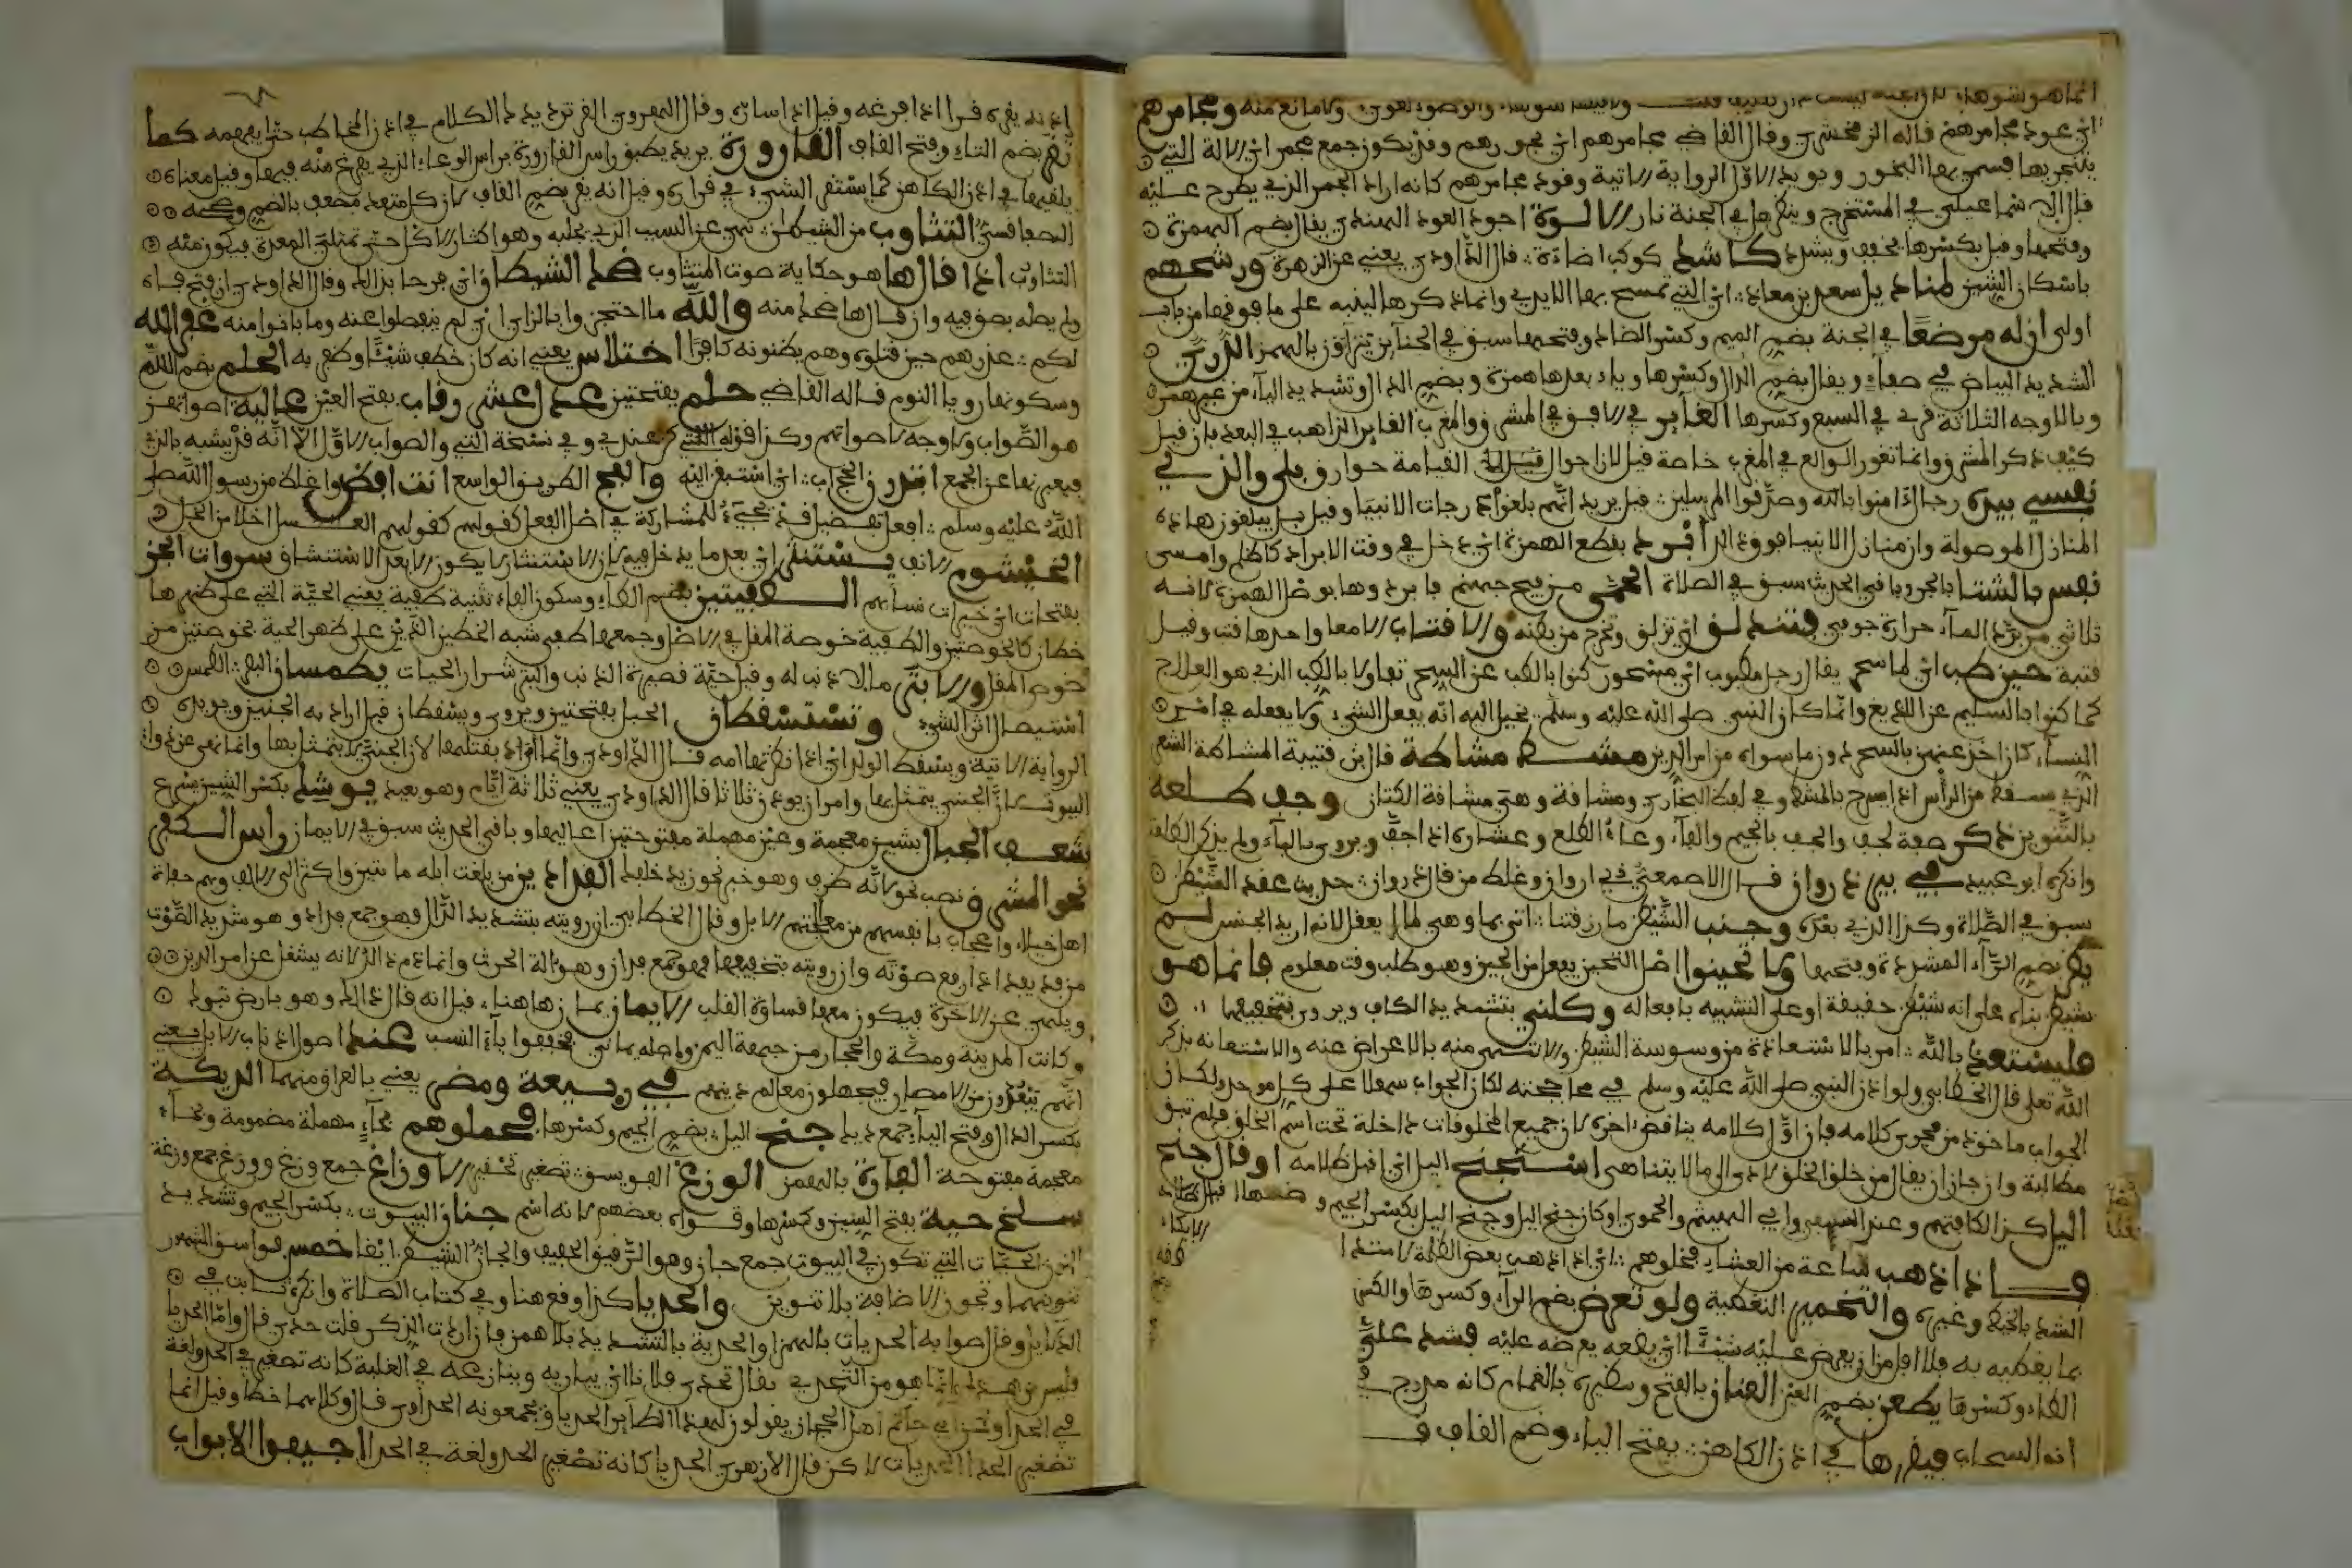 اي عود مجامرهم قاله الزمخشري وقال القاضي مجامرهم اي بخورهم وقد يكون جمع مجمر اي الالة التي
يتبخر بها فسمي بها البخور ويويد الاول الرواية الاتية وقود مجامرهم كانه اراد الجمر الذي يطرح عليه
قال الاسماعيلي في المستخرج وينظر هل في الجنة نار الالوة اجود العود الهندي يقال بضم الهمزة
وفتحها وقيل بكسرها يخفف ويشدد كاشد كوكب اضاءة قال الداودي يعني عن الزهرة ورشحهم
باسكان الشين لمناديل سعد بن معاذ اي التي تمسح بها الايدي وانما ذكرها لينبه على ما فوقها من باب
اولى ان له موضعا في الجنة بضم الميم وكسر الضاد وفتحها سبق في الجنائز يتراءون بالهمز الدري
الشديد البياض في صفاء ويقال بضم الدال وكسرها وياء بعدها همزة وبضم الدال وتشديد الياء من غير همز
وبالاوجه الثلاثة قرئ في السبع وكسرها الغابر في الافق في المشرق والمغرب الغابر الذاهب في البعد فان قيل
كيف ذكر المشرق وانما تغور الكواكب في المغرب خاصة قيل لان احوال القيامة خوارق بلى والذي
نفسي بيده رجال امنوا بالله وصدقوا المرسلين قيل يريد انهم بلغوا درجات الانبيا وقيل بل يبلغون هاذه
المنازل الموصوفة وان منازل الانبيا فوق ذلك أبرد بقطع الهمزة اي دخل في وقت الابراد كاظلم وامسى
نفس بالشتا بالجر وباقي الحديث سبق في الصلاة الحمى من فيح جهنم فابردوها بوصل الهمزة لانه
ثلاثي من برد الماء حرارة جوفي فتندلق اي تزلق وتخرج من بطنه والاقتاب الامعا واحدها قتب وقيل
قتبة حين طب اي لما سحر يقال رجل مطبوب اي مسحور كنوا بالطب عن السحر تفاولا بالطب الذي هو العلاج
كما كنوا بالسليم عن اللديغ وانما كان النبي صلى الله عليه وسلم يخيل اليه انه يفعل الشيء ولا يفعله في امر
النساء كان اخذ عنهن بالسحر دون ما سواه من امر الدين مشط مشاطة قال ابن قتيبة المشاطة الشعر
الذي سقط من الرأس اذا سرح بالمشط وفي لفظ البخاري ومشاقة وهي مشاقة الكتان وجف طلعة
بالتنوين ذكر صفة لجف والجف بالجيم والفاء وعاء الطلع وعشاره اذا جف ويروى بالباء ولم يذكر الطلعة
وانكره ابو عبيد في بير ذروان قال الاصمعي ذي اروان وغلط من قال ذروان حديث عقد الشيطن
سبق في الصلاة وكذا الذي بعده وجنب الشيطن ما رزقتنا اتى بما وهي لما لا يعقل لانه اريد الجنس لم
يضر بضم الراء المشددة وبفتحها ولا تحينوا اصل التحين يفعل من الحين وهو طلب وقت معلوم فانما هو
شيطن بناء على انه شيطن حقيقة او على التشبيه بافعاله وكلني بتشديد الكاف ويروى بتخفيفها
فليستعذ بالله امر بالاستعاذة من وسوسة الشيطن والانتهى منه بالاعراض عنه والاستعانة بذكر
الله تعلى قال الخطابي ولو اذن النبي صلى الله عليه وسلم في محاججته لكان الجواب سهلا على كل موحد ولكان
الجواب ماخوذ من فحوى كلامه فان اول كلامه يناقض اخره لان جميع المخلوقات داخلة تحت اسم الخلق فلم تبق
مطالبة ولو جاز ان يقال من خلق الخلق لادى الى ما لا يتناهى استجنح اليل اي اقبل ظلامه او قال جنح
اليل كذا لكافتهم وعند النسفي وابي الهيثم والحموي او كان جنح اليل وجنح اليل بكسر الجيم وضمها اقبال ظلامه
فاذا ذهب ساعة من العشاء فخلوهم اي اذا ذهب بعض الظلمة لامتداد
الشد بالخيط وغيره والتخمير التغطية ولو تعرض بضم الراء وكسرها والكسر
بما يغطيه به فلا اقل من ان يعرض عليه شيئا اي يضعه يعرضه عليه فشد علي
الفاء وكسرها يطعن بضم العين العنان بالفتح وسكره بالغمام كانه مدرج في
انه السحاب فيقرها في اذن الكاهن بفتح الياء وضم القاف
اذنه يقره قرا اذا افرغه وقيل اذا ساره وقال الهروي القر ترديدك الكلام في اذن المخاطب حتى يفهمه كما
تقر بضم التاء وفتح القاف القارورة يريد يطبق راس القارورة براس الوعاء الذي يفرغ منه فيها وقيل معناه
يلقيها في اذن الكاهن كما يستقر الشيء في قراره وقيل انه يقر بضم القاف لان كل متعد مضعف بالضم
التثاوب من الشيطان نهي عن السبب الذي يجلبه وهو اكثار الاكل حتى تمتلئ المعدة فيكون منه
التثاوب اذا قال ها هو حكاية صوت المتثاوب ضحك الشيطان اي فرحا بذلك وقال الداودي ان فتح فاه
ولم يطه بصق فيه وان قال ها ضحك منه والله ما احتجزوا بالزاي اي لم ينفصلوا عنه وما بانوا منه غفر الله
لكم عذرهم حين قتلوه وهم يظنونه كافرا اختلاس يعني انه كان خطف شيئا وظفر به الحلم بضم اللام
وسكونها رويا النوم قاله القاضي حلم بفتحتين عدل عشر رقاب بفتح العين عالية اصواتهن
هو الصواب ولا وجه لاصواتهم وكذا قوله اللاتي كن عندي وفي نسخة التي والصواب الاول الا انه قد يشبه بالذي
فيعبر بها عن الجمع ابتدرن الحجاب اي استبقن اليه والفج الطريق الواسع انت افظ واغلظ من رسول الله صلى
الله عليه وسلم افعل تفضيل قد تجيء لا للمشاركة في اصل الفعل كقولهم كقولهم العسل احلا من الخل
الخيشوم الانف يستنثر اي بعد ما يدخل فيه لان الاستنثار لا يكون الا بعد الاستنشاق سروات الجن
بفتحات اي خيرات نسايهم الطفيتين بضم الطاء وسكون الفاء تثنية طفية يعني الحية التي على ظهرها
خطان كالخوصتين والطفية خوصة المقل في الاصل وجمعها طفى شبه الخطين اللذين على ظهر الحية بخوصتين من
خوص المقل والابتر ما لا ذنب له وقيل حية قصيرة الذنب والبتر شرار الحيات يطمسان البصر الطمس
استيصال اثر الشيء وتستسقطان الحبل بفتحتين ويروى ويسقطان قيل اراد به الجنين ويويده
الرواية الاتية ويسقط الولد اي اذا نظرتها امه قال الداودي وانما امر بقتلها لان الجني لا يتمثل بها وانما نهى عن ذوات
البيوت لان الجني يتمثل بها وامر ان يوذن ثلاثا قال الداودي يعني ثلاثة ايام وهو بعيد يوشك بكسر الشين يسرع
شعف الجبال بشين معجمة وعين مهملة مفتوحتين اعاليها وباقي الحديث سبق في الايمان راس الكفر
نحو المشرق نصب نحو لانه ظرف وهو خبر نحو زيد خلفك الفدادين من بلغت ابله ما يتين واكثر الى الالف وهم جفاة
اهل خيلاء واعجاب بانفسهم من معالجتهم الابل وقال الخطابي ان رويته بتشديد الدال فهو جمع فداد وهو شديد الصوت
من فد يفد اذا رفع صوته وان رويته بتخفيفها فهو جمع فدان وهو الة الحرث وانما ذم ذلك لانه يشغل عن امر الدين
ويلهى عن الاخرة فيكون معها قساوة القلب الايمان يمان هاهنا قيل انه قال ذلك وهو بارض تبوك
وكانت المدينة ومكة والحجاز من جهة اليمن واصله يماني فخففوا ياء النسب عند اصول اذناب الابل يعني
انهم يبعدون من الامصار فيجهلون معالم دينهم في ربيعة ومضر يعني بالعراق منهما الديكة
بكسر الدال وفتح الياء جمع ديك جنح اليل بضم الجيم وكسرها فحملوهم بحاء مهملة مضمومة وبخاء
معجمة مفتوحة الفارة بالهمز الوزغ الفويسق تصغير تحقير الاوزاغ جمع وزغ ووزغ جمع وزغة
سلخ حية بفتح السين وكسرها وقواه بعضهم لانه اسم جنان البيوت بكسر الجيم وتشديد
النون الحيات التي تكون في البيوت جمع جان وهو الرقيق الخفيف والجان الشيطن ايضا خمس فواسق المشهور
تنوينهما وتجوز الاضافة بلا تنوين والحديا كذا وقع هنا وفي كتاب الصلاة وانكره ثابت في
الدلايل وقال صوابه الحديات بالهمز او الحدية بالتشديد بلا همز فان اردت الذكر قلت حدى قال واما الحديا
فليس من هذا انما هو من التحدي يقال تحدى فلانا اي يباريه وينازعه في الغلبة كانه تصغير الحدو لغة
في الحدا وعن ابي حاتم اهل الحجاز يقولون لهذا الطاير الحديا ويجمعونه الحداوي قال وكلاهما خطا وقيل انما
تصغير الحدا الحديات لكن قال الازهري الحديا كانه تصغير الحدو لغة في الحدا اجيفوا الابواب